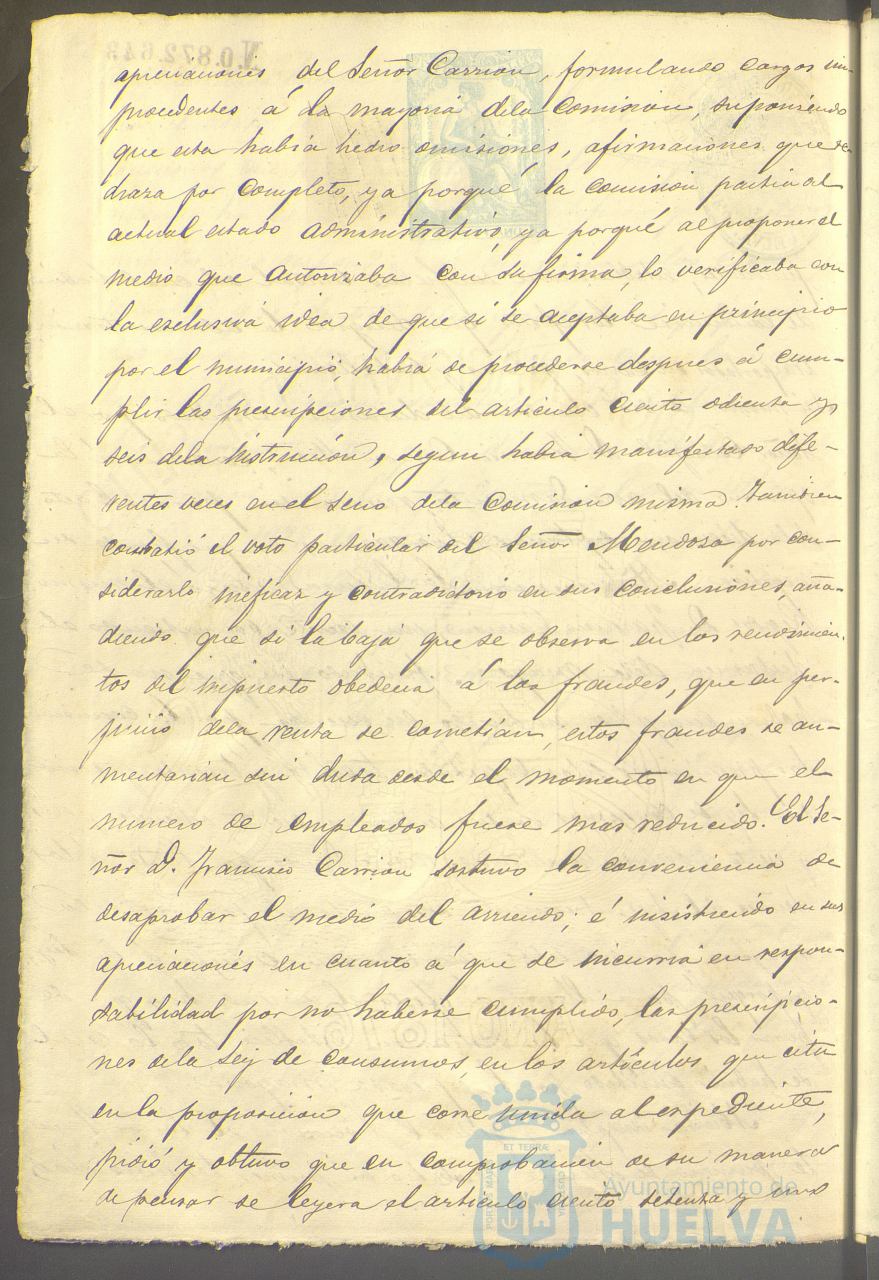 apreciaciones del Señor Carrion, formulando cargos im-
procedentes á la mayoria dela Comision, suponiendo
que esta habia hecho omisiones, afirmaciones que re-
chaza por completo, ya porqué la comision partia al
actual estado administrativo, ya porqué al proponer el
medio que autorizaba con su firma, lo verificaba con
la esclusiva idea de que si se aceptaba en principio
por el municipio, habia de procederse despues á cum-
plir las prescripciones del articulo ciento ochenta y
seis dela Instruccion, segun habia manifestado dife-
rentes veces en el seno dela Comision misma. Tambien
combatió el voto particular del Señor Mendoza por con-
siderarlo ineficaz y contradictorio en sus conclusiones, aña-
diendo que si la baja que se observa en los rendimien-
tos del impuesto obedecia á los fraudes, que en per-
juicio dela renta se cometian, estos fraudes se au-
mentarian sin duda desde el momento en que el
numero de empleados fuese mas reducido. El Se-
ñor D. Francisco Carrion sostuvo la conveniencia de
desaprobar el medio del arriendo; é insistiendo en sus
apreciaciones en cuanto á que se incurria en respon-
sabilidad por no haberse cumplido, las prescripcio-
nes dela Ley de consumos, en los articulos que cita
en la proposicion que corre unida al expediente,
pidió y obtuvo que en comprobacion de su manera
de pensar se leyera el articulo ciento setenta y uno
N.0.872.643
Ayuntamiento de
HUELVA